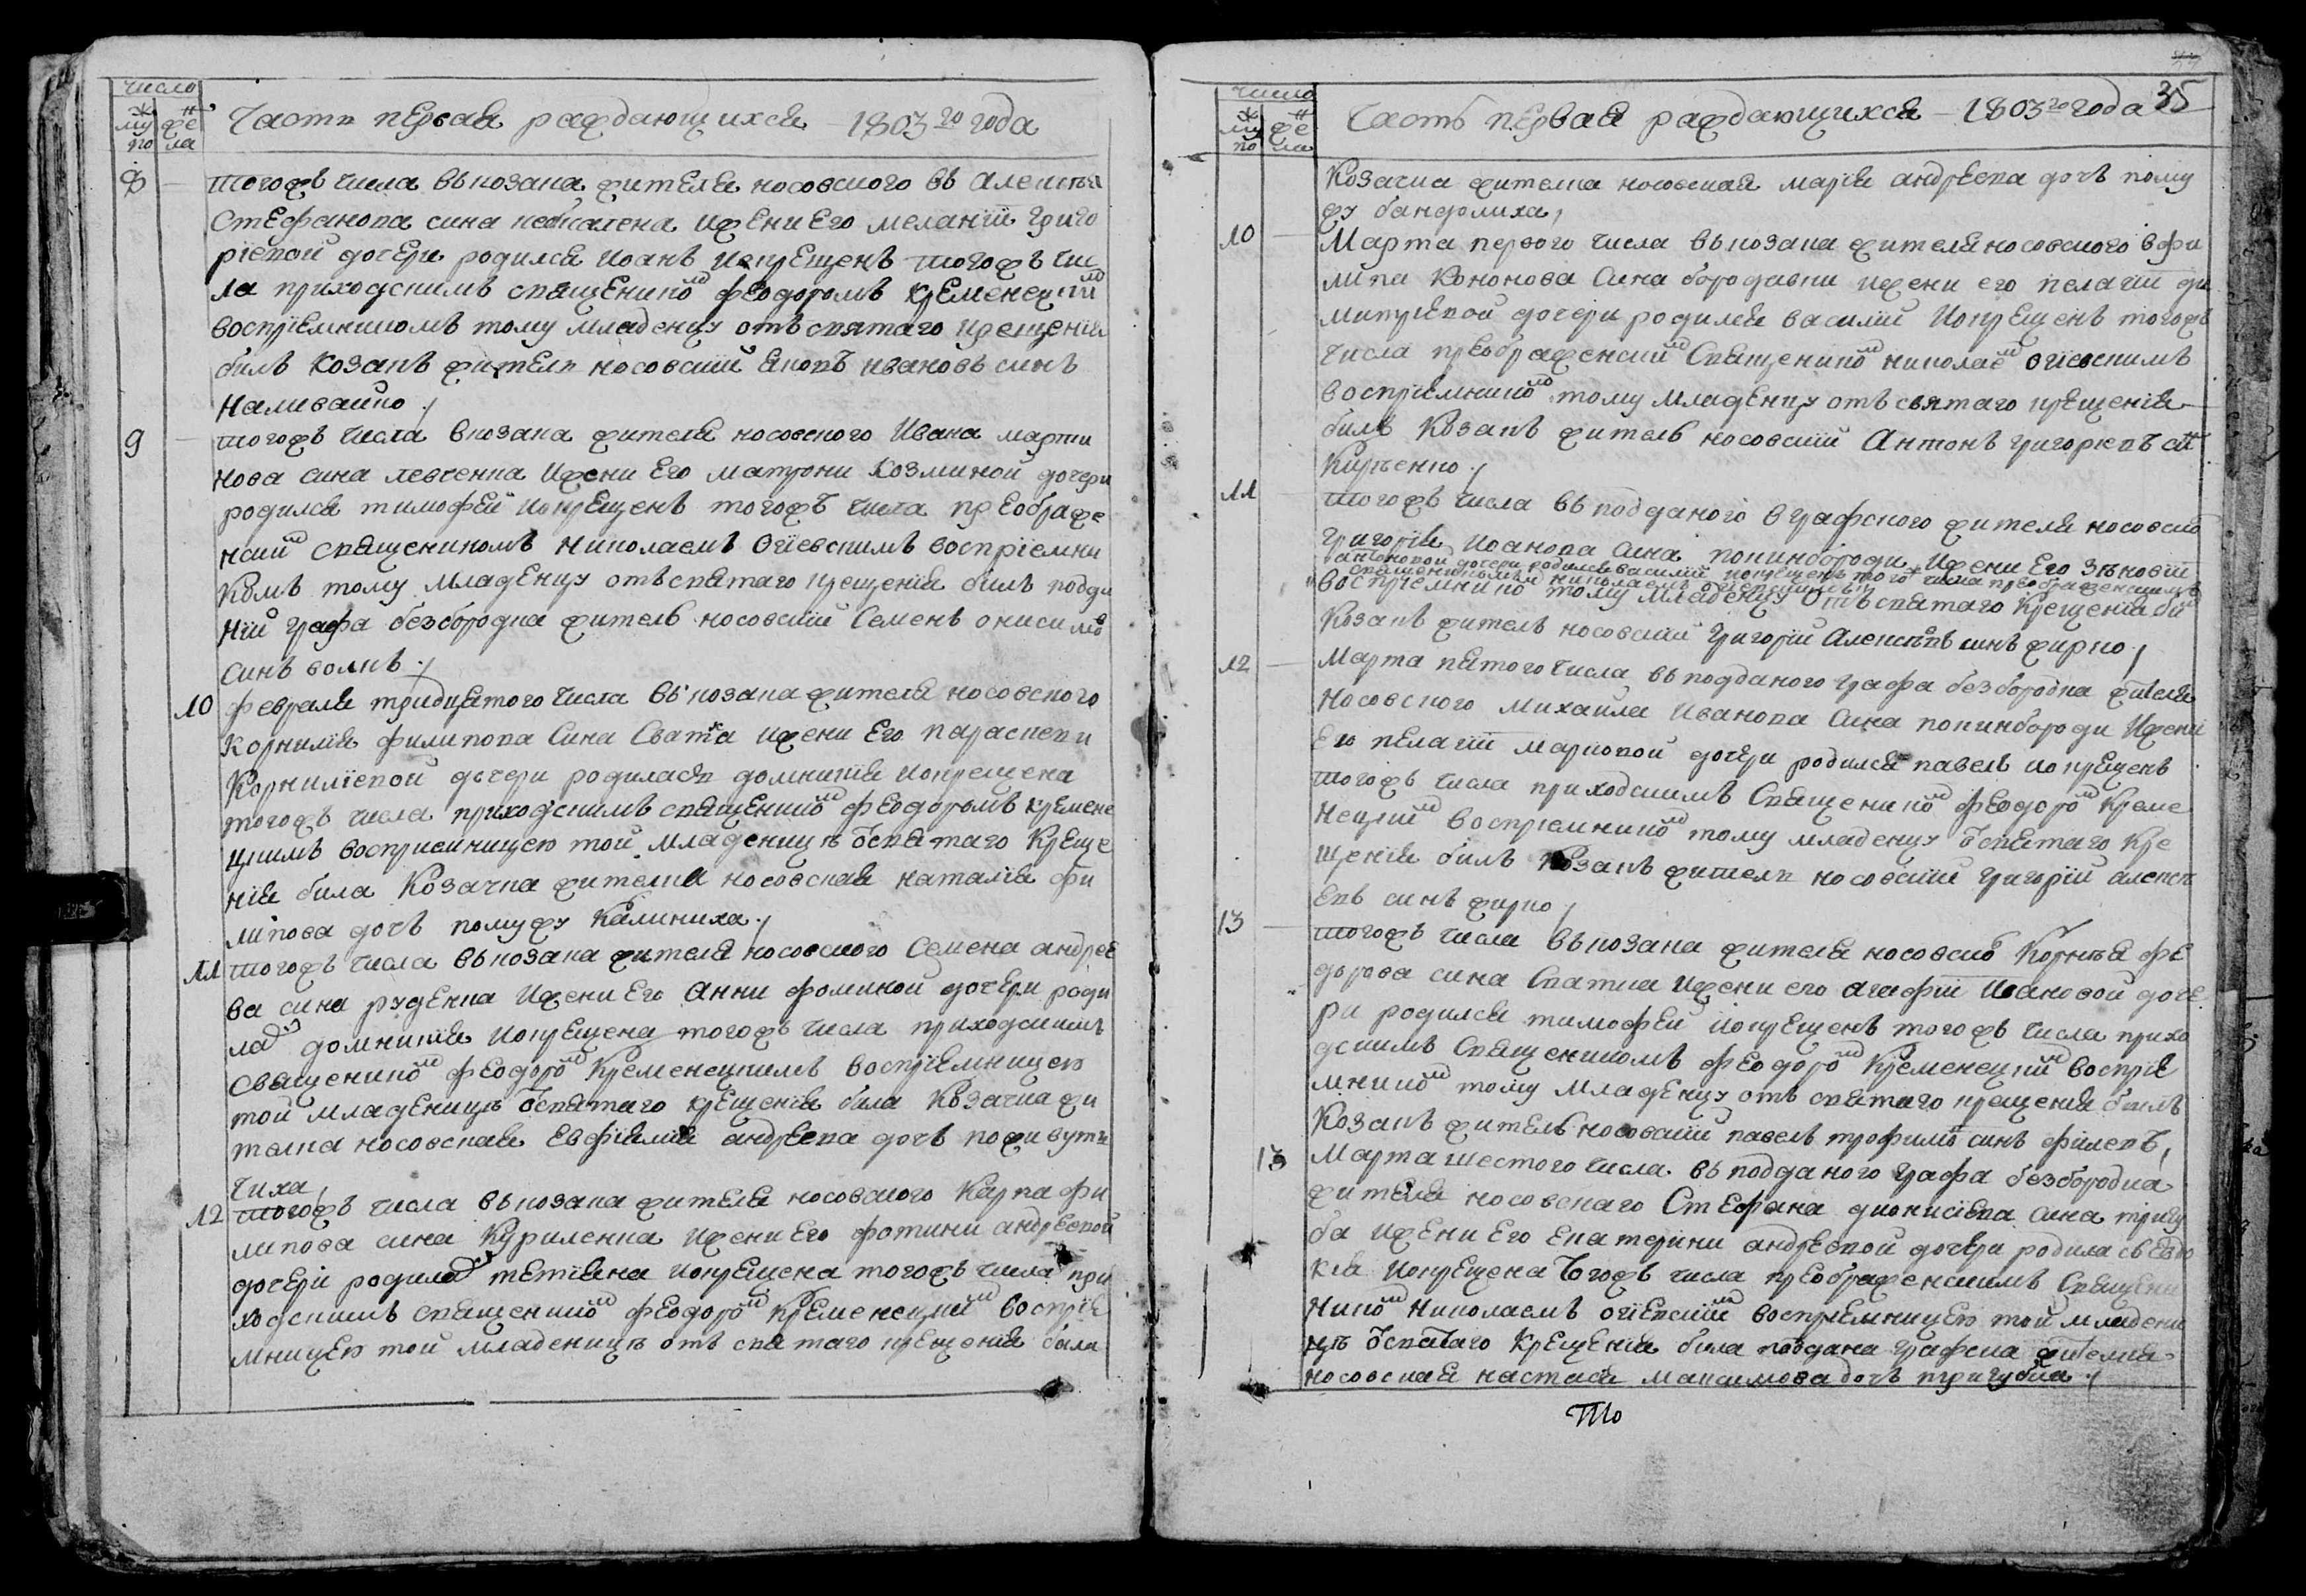 число
муж по
жен ела
Часть первая раждающихся 1803го года
8
тогожъ числа въ козака жителя носовского въ алексѣя
Стефанова сина ижени Его меланїй григо
рїевой дочери родился иоанъ икрещенъ тогожъ чис
ла приходскимъ священиком феодоромъ кременецким
воспріемникомъ тому младенцу отъ святаго крещенія
билъ козакъ житель носовскій яковъ ивановъ синъ
наливайко
9
тогожъ числа вкозака жителя носовского Ивана марти
нова сина левченка ижени Его матрони козминой дочери
родился тимофей икрещенъ тогожъ числа преображе
нским священикомъ николаемъ огїевскимъ воспріемни
комъ тому младенцу отъ святаго крещенія билъ подда
ній графа безбородка житель носовскій Семенъ онисимов
синъ волкъ
10
февраля тридцятого числа въ козака жителя носовского
корнилія филипова сина Сватка ижени Его параскеви
корнилїевой дочери родилася домникія икрещена
тогожъ числа приходскимъ священиком феодоромъ кремене
цкимъ восприемницею той младеницѣ отъ святаго креще
нія била козачка жителка носовская наталія фи
липова дочъ помужу калиниха
11
тогожъ числа въ козака жителя носовского Семена андрее
ва сина руденка ижени Его анни фоминой дочери роди
лась домникія икрещена тогожъ числа приходскимъ
священиком феодором кременецкимъ воспріемницею
той младеницѣ отъ святаго крещенія била козачка жи
телка носовская Евфимія андреева дочъ
чиха
12
тогожъ числа въ козака жителя носовского карпа фи
липова сина куриленка ижени Его фотини андреевой
дочери родилась тетіяна икрещена тогожъ числа при
ходскимъ священиком феодором кременецким воспріе
мницею той младеницѣ отъ святаго крещенія била
35
число
муж по
жен ела
Часть первая раждающихся 1803го года
козачка жителка носовская марія андреева дочъ пому
жу бандолиха
10
Марта первого числа въ козака жителя носовского в фи
липа кононова сина бородавки ижени его пелагїи ди
митріевой дочери родился василій икрещенъ тогожъ
числа преображенским священиком николаем огіевскимъ
воспріемником тому младенцу отъ святаго крещенія
билъ козакъ житель носовскій Антонъ григориевъ син
кирченко
11
тогожъ числа въ подданого графского жителя носовско
григорія иоанова сина попинбороди ижени Его зѣновїи
антоновой дочери родился василій икрещенъ того ж числа преображенскимъ
священикомъ николаемъ огіевскимъ
воспріемником тому младенцу отъ святаго крещенія бил
козакъ житель носовскій григорій алексѣевъ синъ жирко
12
Марта пятого числа въ подданого графа безбородка жителя
носовского михаила иванова сина попинбороди ижени
Его пелагїи марковой дочери родился павелъ икрещенъ
тогожъ числа приходскимъ священиком феодором креме
нецким воспріемником тому младенцу отъ святаго кре
щенія билъ козакъ житель носовскій григорій алексѣ
евъ синъ жирко
13
тогожъ числа въ козака жителя носовско корнѣя фе
дорова сина Сватка ижени его агафїи ивановой доче
ри родился тимофей икрещенъ тогожъ числа прихо
дскимъ священикомъ феодором кременецким воспріе
мником тому младенцу отъ святаго крещенія билъ
козакъ житель носовскій павелъ трофимов синъ
13
Марта шестого числа въ подданого графа безбородка
жителя носовскаго Стефана дионисіева сина тригу
ба ижени Его екатерини андреевой дочери родила сь Евдо
кія икрещена тогожъ числа преображенскимъ священи
ником николаемъ огіевским воспріемницею той младени
цѣ отъ святаго крещенія била поддана графска жителка
носовская настасія максимова дочъ тригубка
то